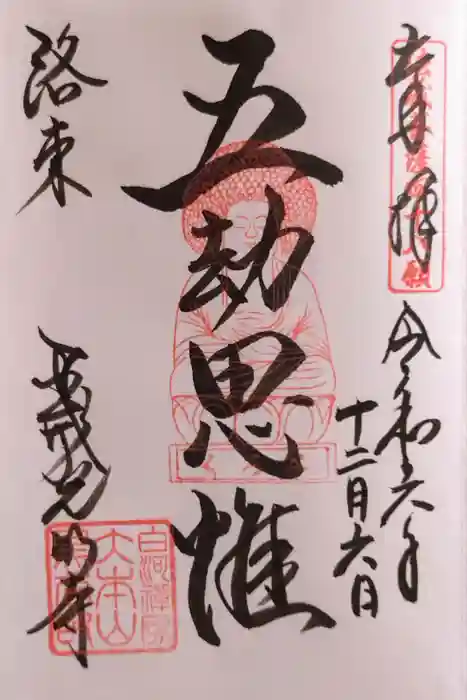 奉拝
令和六年
十二月六日
五劫思惟
洛東
金戒光明寺
白河禅房
大本山